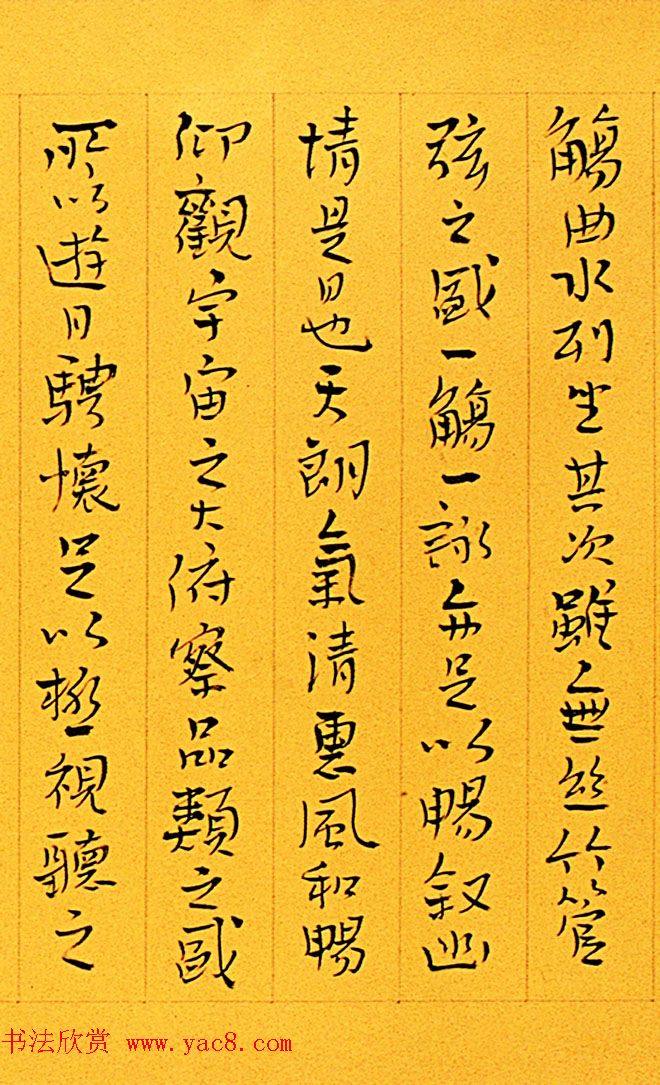 觴曲水列坐其次雖無丝竹管
弦之盛一觴一詠亦足以暢叙幽
情是日也天朗氣清惠風和暢
仰觀宇宙之大俯察品類之盛
所以遊目騁懷足以極視聽之
书法欣赏 www.yac8.com